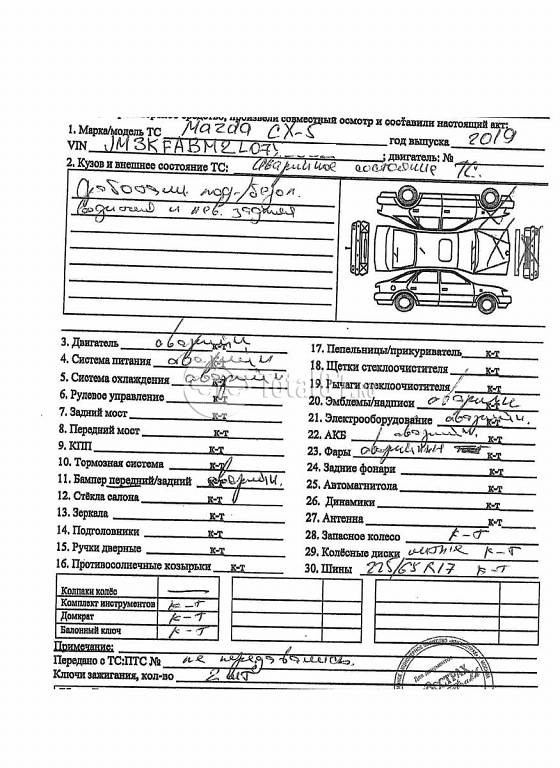 произвели совместный осмотр и составили настоящий акт:
1. Марка/модель ТС Mazda CX-5 год выпуска 2019
VIN JM3KFABM2L07 ; двигатель: №
2. Кузов и внешнее состояние ТС: Аварийное состояние ТС.
3. Двигатель аварийн к-т
4. Система питания аварийн к-т
5. Система охлаждения аварийн к-т
6. Рулевое управление к-т
7. Задний мост к-т
8. Передний мост к-т
9. КПП к-т
10. Тормозная система к-т
11. Бампер передний/задний аварийн. к-т
12. Стёкла салона к-т
13. Зеркала к-т
14. Подголовники к-т
15. Ручки дверные к-т
16. Противосолнечные козырьки к-т
17. Пепельницы/прикуриватель к-т
18. Щетки стеклоочистителя к-т
19. Рычаги стеклоочистителя к-т
20. Эмблемы/надписи аварийн к-т
21. Электрооборудование аварийн. к-т
22. АКБ аварийн. к-т
23. Фары аварийнын к-т
24. Задние фонари к-т
25. Автомагнитола к-т
26. Динамики к-т
27. Антенна к-т
28. Запасное колесо к-т
29. Колёсные диски литые к-т
30. Шины 225/65 R17 к-т
Колпаки колёс —
Комплект инструментов к-т
Домкрат к-т
Балонный ключ к-т
Примечание:
Передано с ТС:ПТС № не передавались.
Ключи зажигания, кол-во 2 шт